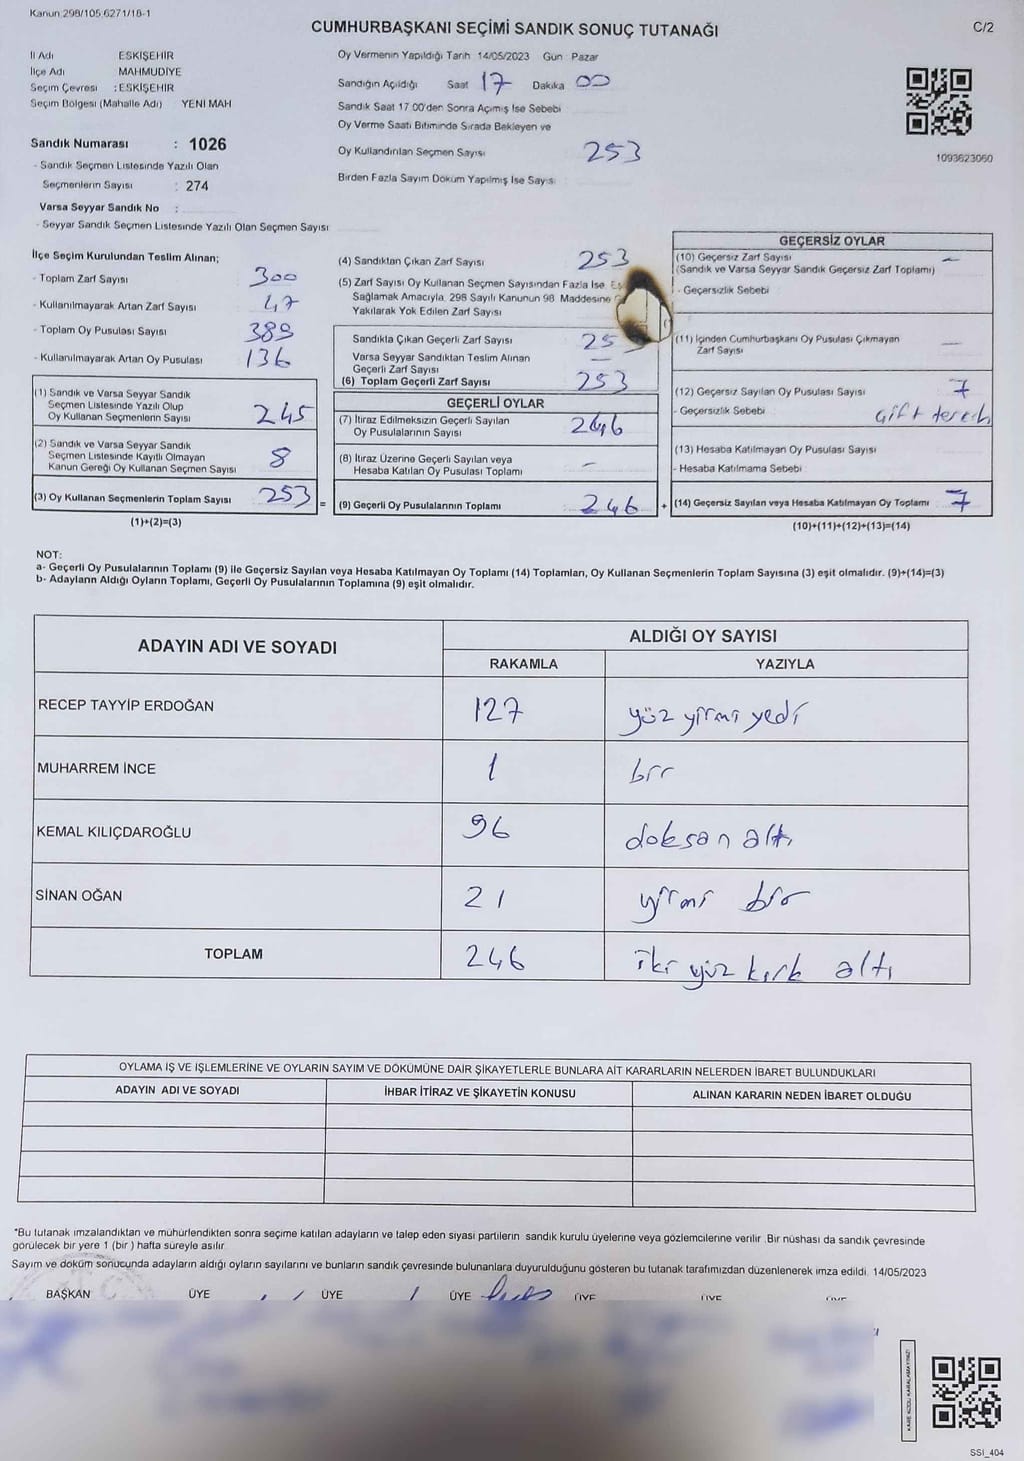 Kanun 298/105 6271/18-1
CUMHURBAŞKANI SEÇİMİ SANDIK SONUÇ TUTANAĞI
C/2
İl Adı ESKİŞEHİR
İlçe Adı MAHMUDİYE
Seçim Çevresi : ESKİŞEHİR
Seçim Bölgesi (Mahalle Adı) YENİ MAH
Oy Vermenin Yapıldığı Tarih 14/05/2023 Gün Pazar
Sandığın Açıldığı Saat 17 Dakika 00
Sandık Saat 17 00'den Sonra Açılmış İse Sebebi
Oy Verme Saati Bitiminde Sırada Bekleyen ve
Oy Kullandırılan Seçmen Sayısı 253
Birden Fazla Sayım Döküm Yapılmış İse Sayısı
1093623060
Sandık Numarası : 1026
- Sandık Seçmen Listesinde Yazılı Olan
Seçmenlerin Sayısı : 274
Varsa Seyyar Sandık No :
- Seyyar Sandık Seçmen Listesinde Yazılı Olan Seçmen Sayısı
İlçe Seçim Kurulundan Teslim Alınan;
- Toplam Zarf Sayısı 300
- Kullanılmayarak Artan Zarf Sayısı 47
- Toplam Oy Pusulası Sayısı 389
- Kullanılmayarak Artan Oy Pusulası 136
(1) Sandık ve Varsa Seyyar Sandık
Seçmen Listesinde Yazılı Olup
Oy Kullanan Seçmenlerin Sayısı 245
(2) Sandık ve Varsa Seyyar Sandık
Seçmen Listesinde Kayıtlı Olmayan
Kanun Gereği Oy Kullanan Seçmen Sayısı 8
(3) Oy Kullanan Seçmenlerin Toplam Sayısı 253 =
(1)+(2)=(3)
(4) Sandıktan Çıkan Zarf Sayısı 253
(5) Zarf Sayısı Oy Kullanan Seçmen Sayısından Fazla İse
Sağlamak Amacıyla, 298 Sayılı Kanunun 98 Maddesine
Yakılarak Yok Edilen Zarf Sayısı
Sandıkta Çıkan Geçerli Zarf Sayısı 253
Varsa Seyyar Sandıktan Teslim Alınan
Geçerli Zarf Sayısı —
(6) Toplam Geçerli Zarf Sayısı 253
GEÇERLİ OYLAR
(7) İtiraz Edilmeksizin Geçerli Sayılan
Oy Pusulalarının Sayısı 246
(8) İtiraz Üzerine Geçerli Sayılan veya
Hesaba Katılan Oy Pusulası Toplamı —
(9) Geçerli Oy Pusulalarının Toplamı 246 +
GEÇERSİZ OYLAR
(10) Geçersiz Zarf Sayısı —
(Sandık ve Varsa Seyyar Sandık Geçersiz Zarf Toplamı)
- Geçersizlik Sebebi
(11) İçinden Cumhurbaşkanı Oy Pusulası Çıkmayan
Zarf Sayısı —
(12) Geçersiz Sayılan Oy Pusulası Sayısı 7
- Geçersizlik Sebebi Çift tercih
(13) Hesaba Katılmayan Oy Pusulası Sayısı
- Hesaba Katılmama Sebebi
(14) Geçersiz Sayılan veya Hesaba Katılmayan Oy Toplamı 7
(10)+(11)+(12)+(13)=(14)
NOT:
a- Geçerli Oy Pusulalarının Toplamı (9) ile Geçersiz Sayılan veya Hesaba Katılmayan Oy Toplamı (14) Toplamları, Oy Kullanan Seçmenlerin Toplam Sayısına (3) eşit olmalıdır. (9)+(14)=(3)
b- Adayların Aldığı Oyların Toplamı, Geçerli Oy Pusulalarının Toplamına (9) eşit olmalıdır.
ADAYIN ADI VE SOYADI
ALDIĞI OY SAYISI
RAKAMLA YAZIYLA
RECEP TAYYİP ERDOĞAN 127 yüz yirmi yedi
MUHARREM İNCE 1 bir
KEMAL KILIÇDAROĞLU 96 doksan altı
SİNAN OĞAN 21 yirmi bir
TOPLAM 246 iki yüz kırk altı
OYLAMA İŞ VE İŞLEMLERİNE VE OYLARIN SAYIM VE DÖKÜMÜNE DAİR ŞİKAYETLERLE BUNLARA AİT KARARLARIN NELERDEN İBARET BULUNDUKLARI
ADAYIN ADI VE SOYADI İHBAR İTİRAZ VE ŞİKAYETİN KONUSU ALINAN KARARIN NEDEN İBARET OLDUĞU
*Bu tutanak imzalandıktan ve mühürlendikten sonra seçime katılan adayların ve talep eden siyasi partilerin sandık kurulu üyelerine veya gözlemcilerine verilir .Bir nüshası da sandık çevresinde
görülecek bir yere 1 (bir ) hafta süreyle asılır
Sayım ve döküm sonucunda adayların aldığı oyların sayılarını ve bunların sandık çevresinde bulunanlara duyurulduğunu gösteren bu tutanak tarafımızdan düzenlenerek imza edildi. 14/05/2023
BAŞKAN ÜYE ÜYE ÜYE ÜYE ÜYE ÜYE
KARE KODU KARALAMAYINIZ!
SSI_404